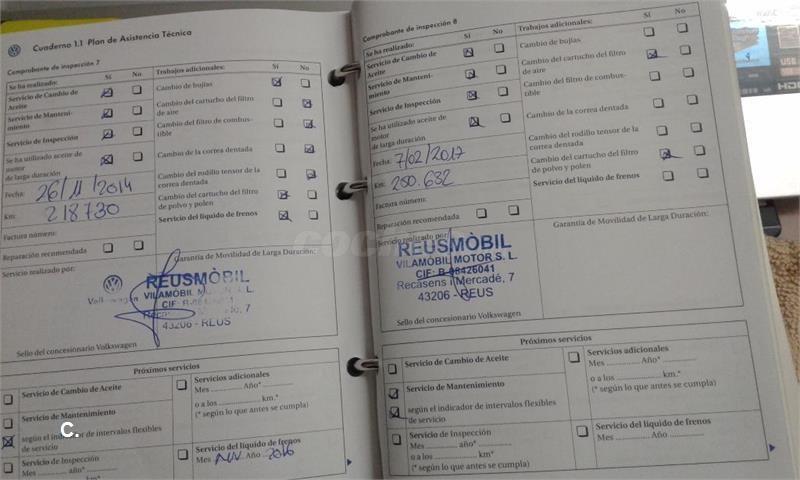 Cuaderno 1.1 Plan de Asistencia Técnica
Comprobante de inspección 7
Se ha realizado: Sí No Trabajos adicionales: Sí No
Servicio de Cambio de Aceite
Servicio de Manteni-
miento
Servicio de Inspección
Se ha utilizado aceite de
motor
de larga duración
Fecha: 26/11/2014
Km: 218730
Factura número:
Reparación recomendada
Cambio de bujías
Cambio del cartucho del filtro
de aire
Cambio del filtro de combus-
tible
Cambio de la correa dentada
Cambio del rodillo tensor de la
correa dentada
Cambio del cartucho del filtro
de polvo y polen
Servicio del líquido de frenos
Servicio realizado por:
Garantía de Movilidad de Larga Duración:
REUSMÒBIL
VILAMÒBIL
43206 - REUS
Sello del concesionario Volkswagen
Próximos servicios
Servicio de Cambio de Aceite
Servicio de Mantenimiento
según el indicador de intervalos flexibles
de servicio
Servicio de Inspección
Mes año*
Servicios adicionales
Mes Año*
o a los km.*
(* según lo que antes se cumpla)
Servicio del líquido de frenos
Mes Año 2016
Comprobante de inspección 8
Se ha realizado: Sí No Trabajos adicionales: Sí No
Servicio de Cambio de
Aceite
Servicio de Manteni-
miento
Servicio de Inspección
Se ha utilizado aceite de
motor
de larga duración
Fecha: 7/02/2017
Km: 250.632
Factura número:
Reparación recomendada
Cambio de bujías
Cambio del cartucho del filtro
de aire
Cambio del filtro de combus-
tible
Cambio de la correa dentada
Cambio del rodillo tensor de la
correa dentada
Cambio del cartucho del filtro
de polvo y polen
Servicio del líquido de frenos
Servicio realizado por:
Garantía de Movilidad de Larga Duración:
REUSMÒBIL
VILAMÒBIL MOTOR S. L.
CIF: B-08426041
Recasens i Mercadé, 7
43206 - REUS
Sello del concesionario Volkswagen
Próximos servicios
Servicio de Cambio de Aceite
Servicio de Mantenimiento
según el indicador de intervalos flexibles
de servicio
Servicio de Inspección
Mes año*
o a los km.*
(* según lo que antes se cumpla)
Servicios adicionales
Mes Año*
o a los km.*
(* según lo que antes se cumpla)
Servicio del líquido de frenos
Mes Año
C.
USB